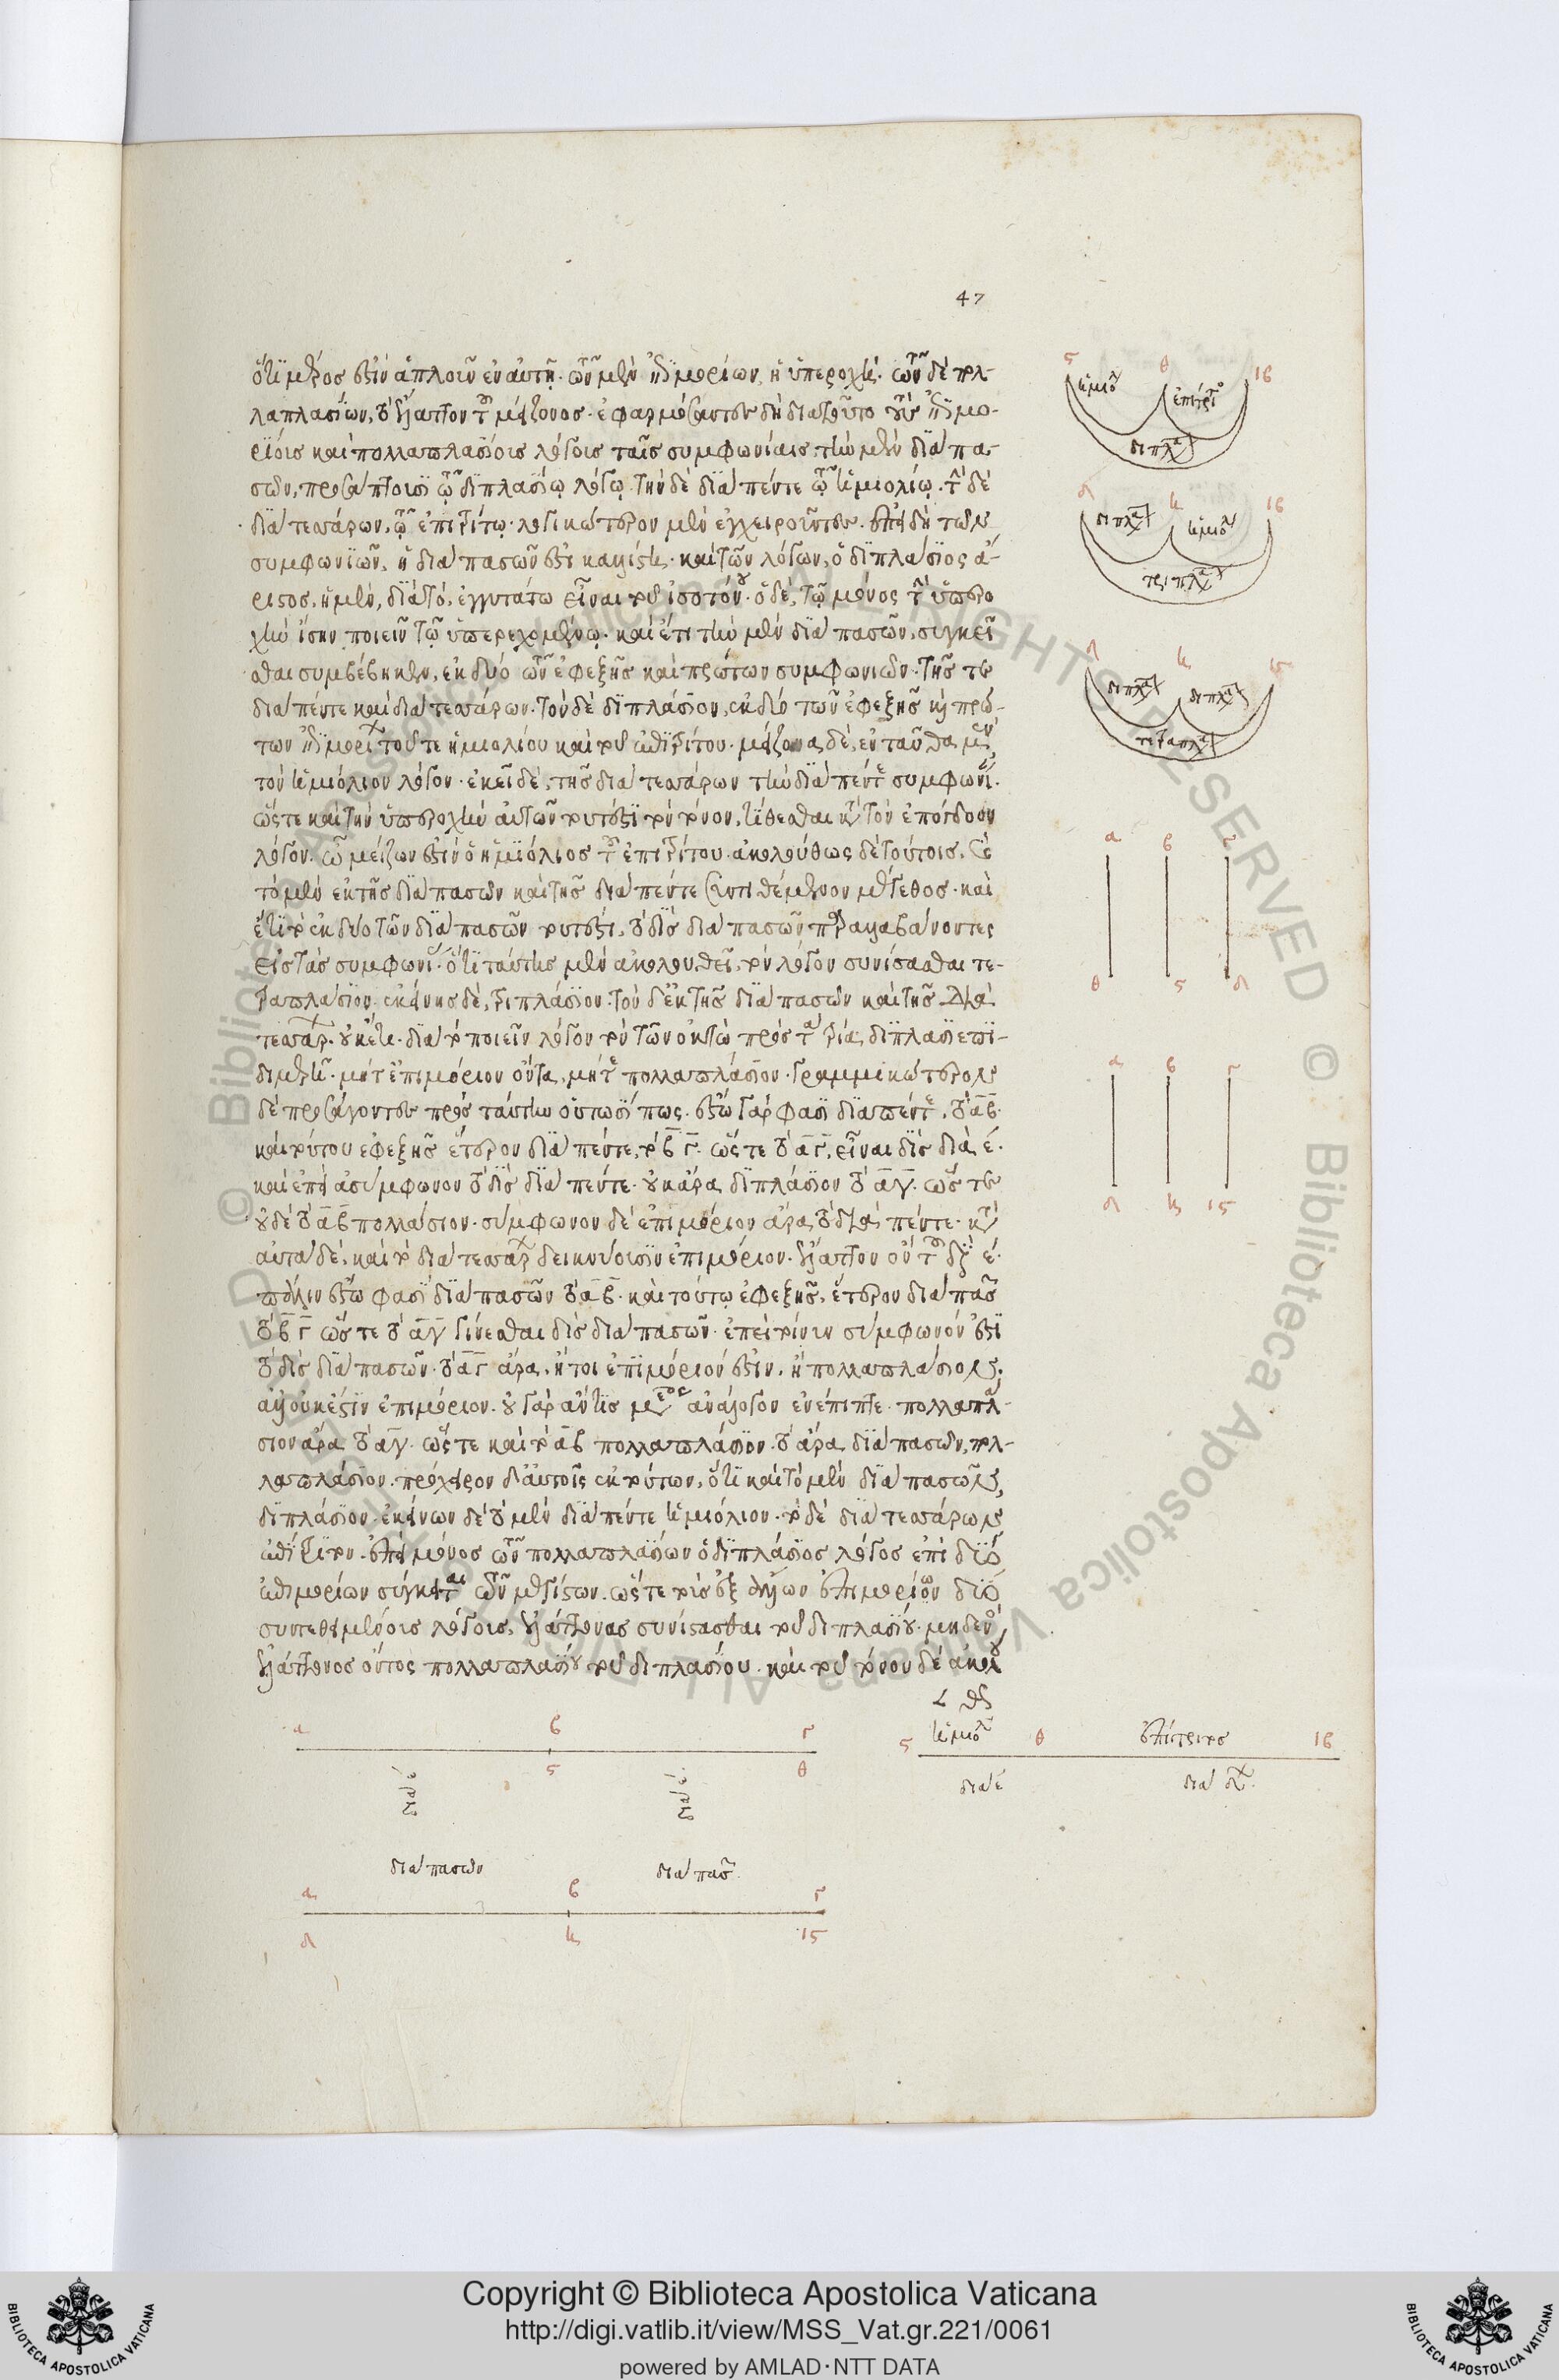 47
ὅτι μέρος ἐστὶν ἁπλοῦν ἐν αὐτῇ. τῶν μὲν ἐπιμορίων, ἡ ὑπεροχή. τῶν δὲ πολ-
λαπλασίων, τὸ ἔλαττον τοῦ μείζονος. ἐφαρμόσαντες δὴ διὰ τοῦτο τοὺς ἐπιμο-
ρίοις καὶ πολλαπλασίοις λόγοις ταῖς συμφωνίαις. τὴν μὲν διὰ πα-
σῶν, προσάπτουσι τῷ διπλασίῳ λόγῳ. τὴν δὲ διὰ πέντε τῷ ἡμιολίῳ. τὴν δὲ
διὰ τεσσάρων, τῷ ἐπιτρίτῳ. λογικώτερον μὲν ἐγχειροῦντες. ἐπειδὴ τῶν
συμφωνιῶν, ἡ διὰ πασῶν ἐστι καλλίστη. καὶ τῶν λόγων, ὁ διπλάσιος ἄ-
ριστος. ἡ μὲν, διὰ τὸ, ἐγγυτάτω εἶναι τοῦ ἰσοτόνου. ὁ δὲ, τῷ μόνος τὴν ὑπερο
χὴν ἴσην ποιεῖν τῷ ὑπερεχομένῳ. καὶ ἔτι τὴν μὲν διὰ πασῶν, συγκεῖ
σθαι συμβέβηκεν, ἐκ δύο τῶν ἐφεξῆς καὶ πρώτων συμφωνιῶν. τῆς τε
διὰ πέντε καὶ διὰ τεσσάρων. τὸν δὲ διπλάσιον, ἐκ δύο τῶν ἐφεξῆς καὶ πρώ-
των ἐπιμορίων τοῦ τε ἡμιολίου καὶ τοῦ ἐπιτρίτου. μείζονα δὲ, ἐνταῦθα μὲν
τὸν ἡμιόλιον λόγον. ἐκεῖ δὲ, τῆς διὰ τεσσάρων τὴν διὰ πέντε συμφωνί.
ὥστε καὶ τὴν ὑπεροχὴν αὐτῶν τουτέστι τὸν τόνον, τίθεσθαι κατὰ τὸν ἐπόγδοον
λόγον. ᾧ μείζων ἐστὶν ὁ ἡμιόλιος τοῦ ἐπιτρίτου. ἀκολούθως δὲ τούτοις,
τὸ μὲν ἐκ τῆς διὰ πασῶν καὶ τῆς διὰ πέντε συντιθέμενον μέγεθος. καὶ
ἔτι τὸ ἐκ δύο τῶν διὰ πασῶν τουτέστι, τὸ δὶς διὰ πασῶν παραλαβάνοντες
εἰς τὰς συμφωνί. ὅτι ταύτης μὲν ἀκολουθεῖ, τὸν λόγον συνίστασθαι τε-
τραπλάσιον. ἐκείνης δὲ, τριπλάσιον. τὸν δ' ἐκ τῆς διὰ πασῶν καὶ τῆς διὰ
τεσσάρ. οὐκέτι. διὰ τὸ ποιεῖν λόγον τὸν τῶν ὀκτὼ πρὸς τὰ τρία, διπλασιεπι-
διμερῆ. μήτ' ἐπιμόριον ὄντα, μήτε πολλαπλάσιον. γραμμικώτερον
δὲ προσάγοντες πρὸς ταύτην οὑτωσί πως. ἔστω γάρ φασι διὰ πέντε, τὸ α̅β̅.
καὶ τούτου ἐφεξῆς ἕτερον διὰ πέντε, τὸ β̅ γ̅. ὥστε τὸ α̅ γ̅, εἶναι δὶς διὰ, ε΄.
καὶ ἐπεὶ ἀσύμφωνον τὸ δὶς διὰ πέντε. οὐκ ἄρα διπλάσιον τὸ α̅γ̅. ὥστε
οὐδὲ τὸ α̅β̅ πολλάσιον. σύμφωνον δὲ ἐπιμόριον ἄρα τὸ διὰ πέντε. κατὰ
αὐτὰ δὲ, καὶ τὸ διὰ τεσσάρ δεικνύουσιν ἐπιμόριον. ἔλαττον ὂν τοῦ διὰ ε΄.
πάλιν ἔστω φασὶ διὰ πασῶν τὸ α̅β̅. καὶ τούτῳ ἐφεξῆς, ἕτερον διὰ πασ
τὸ β̅ γ̅ ὥστε τὸ α̅γ̅ γίνεσθαι δὶς διὰ πασῶν. ἐπεὶ τοίνυν σύμφωνόν ἐστι
τὸ δὶς διὰ πασῶν. τὸ α̅γ̅ ἄρα, ἤτοι ἐπιμόριόν ἐστιν, ἢ πολλαπλάσιον,
ἀλλ' οὐκ ἔστιν ἐπιμόριον. οὐ γὰρ ἄν τις μέσος ἀνάλογον ἐνέπιπτε. πολλαπλ-
σιον ἄρα τὸ α̅γ̅. ὥστε καὶ τὸ α̅β̅ πολλαπλάσιον. τὸ ἄρα διὰ πασῶν, πολ-
λαπλάσιον. πρόχειρον δ' αὐτοῖς ἐκ τούτων, ὅτι καὶ τὸ μὲν διὰ πασῶν,
διπλάσιον. ἐκείνων δὲ τὸ μὲν διὰ πέντε ἡμιόλιον. τὸ δὲ διὰ τεσσάρων
ἐπίτριτον. ἐπεὶ μόνος τῶν πολλαπλασίων ὁ διπλάσιος λόγος ἐπὶ δύο
ἐπιμορίων σύγκειται τῶν μεγίστων. ὥστε τοὺς ἐξ ἄλλων ἐπιμορίων δύο
συντεθειμένοις λόγοις, ἐλάττονας συνίστασθαι τοῦ διπλασίου. μηδενὸς
ἐλάττονος ὄντος πολλαπλασίου τοῦ διπλασίου. καὶ τοῦ τόνου δὲ ἀκολού
θως
ς θ ιβ
ἡμιόλ ἐπίτριτο
διπλα
δ η ιβ
διπλα ἡμιολ
τριπλα
δ η ις
διπλα διπλα
τετραπλα
α β γ
θ ς δ
α β γ
δ η ις
α β γ
ς θ
διὰ ε΄ διὰ ε΄
ς ἡμιόλ θ ἐπίτριτος ιβ
διὰ ε΄ διὰ δ
διὰ πασῶν διὰ πασ
α β γ
δ η ις
Copyright © Biblioteca Apostolica Vaticana
http://digi.vatlib.it/view/MSS_Vat.gr.221/0061
powered by AMLAD·NTT DATA